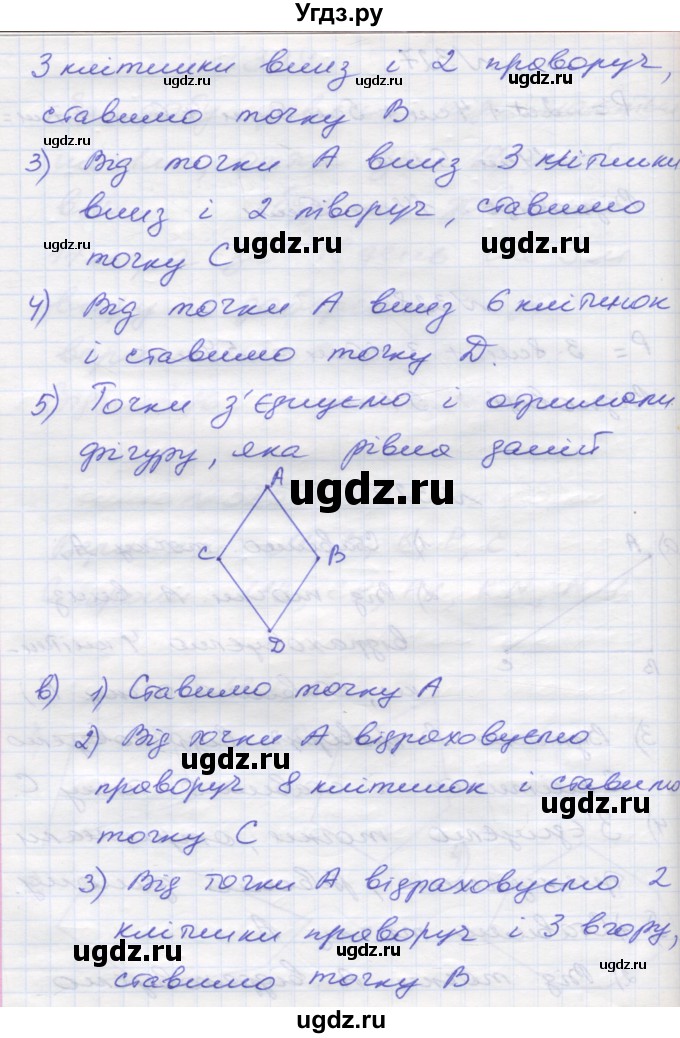 Угдз.ру
3 клітинки вниз і 2 праворуч,
ставимо точку В
ugdz.ru ugdz.ru
3) Від точки А вниз 3 клітинки
ugdz.ru
вниз і 2 ліворуч, ставимо
ugdz.ru ugdz.ru ugdz.ru
точку С
4) Від точки А вниз 6 клітинок
і ставимо точку D.
ugdz.ru
5) Точки з'єднуємо і отримали
фігуру, яка рівна даній
ugdz.ru
A
ugdz.ru
C B
D
в) 1) Ставимо точку А
ugdz.ru
2) Від точки А відраховуємо
ugdz.ru
праворуч 8 клітинок і ставимо
ugdz.ru
точку С
3) Від точки А відраховуємо 2
клітинки праворуч і 3 вгору,
ugdz.ru ugdz.ru ugdz.ru
ставимо точку В
ugdz.ru